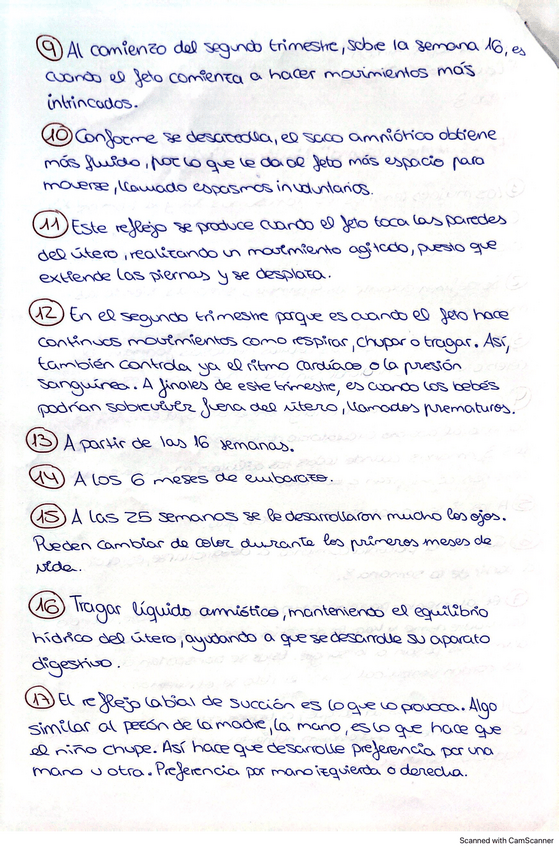 9 Al comienzo del segundo trimestre, sobre la semana 16, es
cuando el feto comienza a hacer movimientos más
intrincados.
10 Conforme se desarrolla, el saco amniótico obtiene
más fluido, por lo que le da al feto más espacio para
moverse, llamado espasmos involuntarios.
11 Este reflejo se produce cuando el feto toca las paredes
del útero, realizando un movimiento agitado, puesto que
extiende las piernas y se desplaza.
12 En el segundo trimestre porque es cuando el feto hace
continuos movimientos como respirar, chupar o tragar. Así,
también controla ya el ritmo cardíaco o la presión
sanguínea. A finales de este trimestre, es cuando los bebés
podrían sobrevivir fuera del útero, llamados prematuros.
13 A partir de las 16 semanas.
14 A los 6 meses de embarazo.
15 A las 25 semanas se le desarrollaron mucho los ojos.
Pueden cambiar de color durante los primeros meses de
vida.
16 Tragar líquido amniótico, manteniendo el equilibrio
hídrico del útero, ayudando a que se desarrolle su aparato
digestivo.
17 El reflejo labial de succión es lo que lo provoca. Algo
similar al pezón de la madre, la mano, es lo que hace que
el niño chupe. Así hace que desarrolle preferencia por una
mano u otra. Preferencia por mano izquierda o derecha.
Scanned with CamScanner